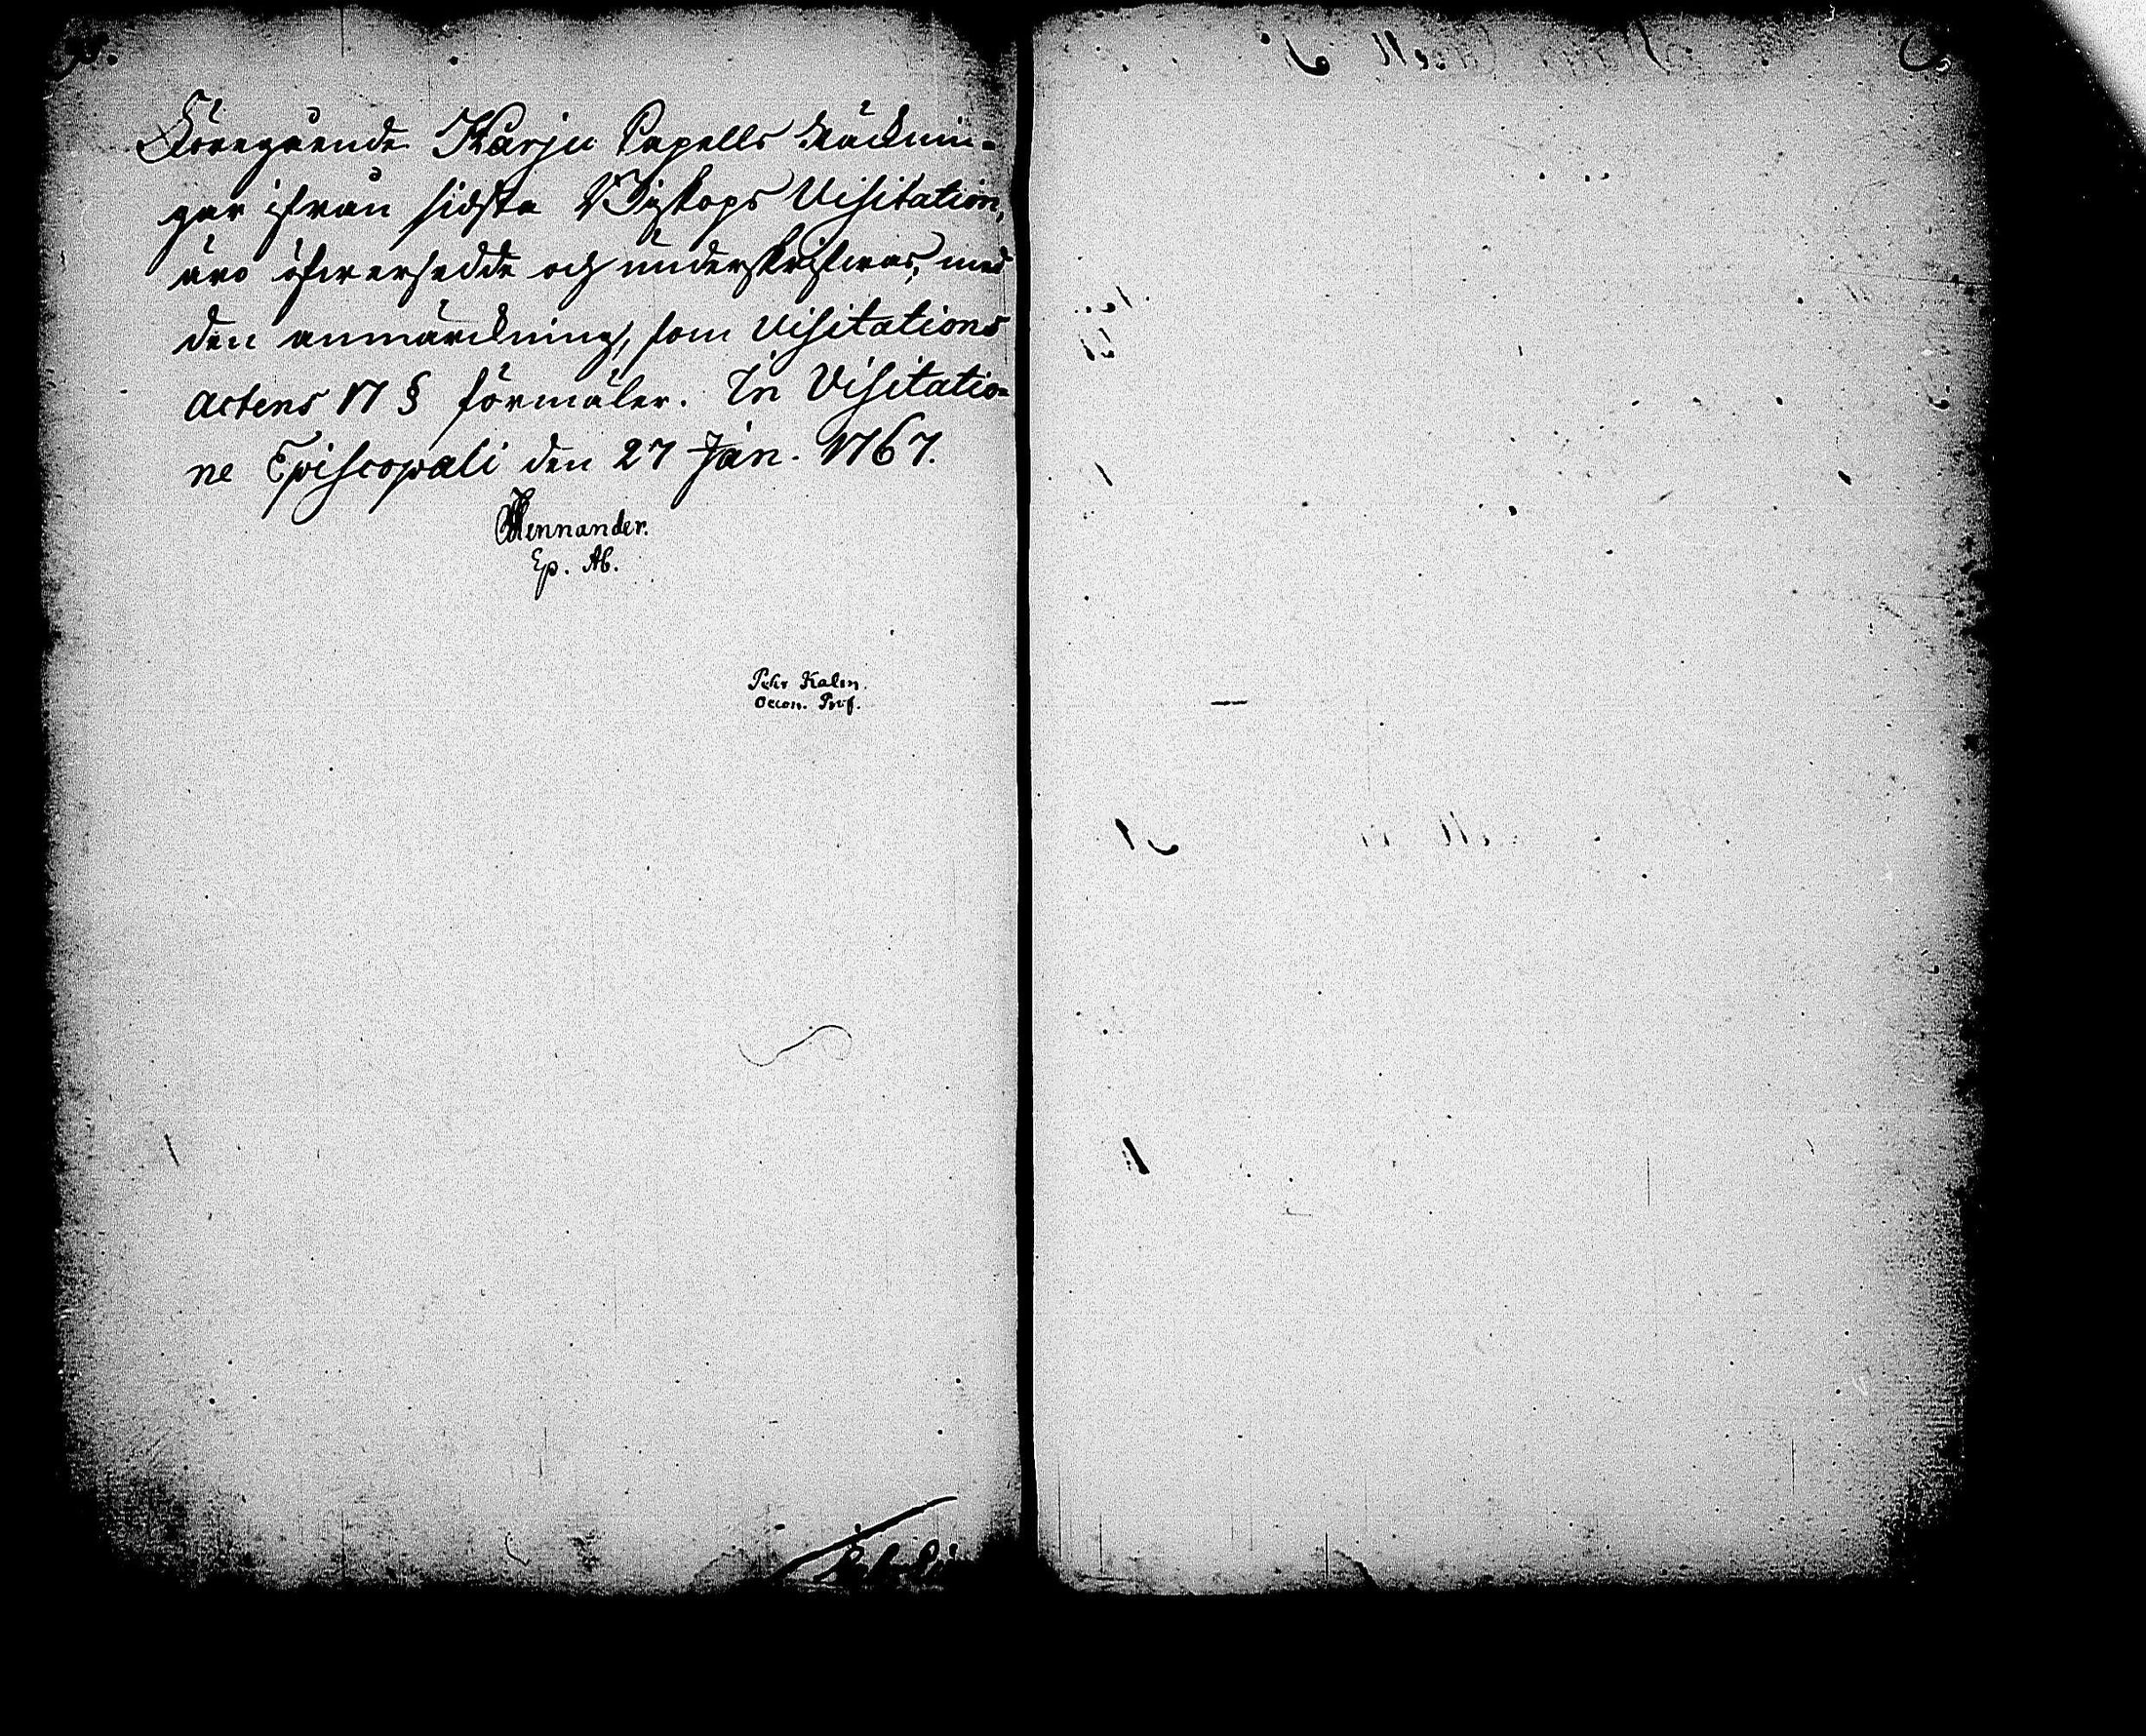 Föregående Karju Capells Räcknin-
gar ifrån sidsta Biskops Visitation,
äro öfwersedde och underskrifwas, med
den anmärckning, som Visitations
Actens 17 § förmäler. In Visitatio-
ne Episcopali den 27 Jan. 1767.
CFMennander.
Ep. Ab.
Pehr Kalm.
Oecon. Prof.